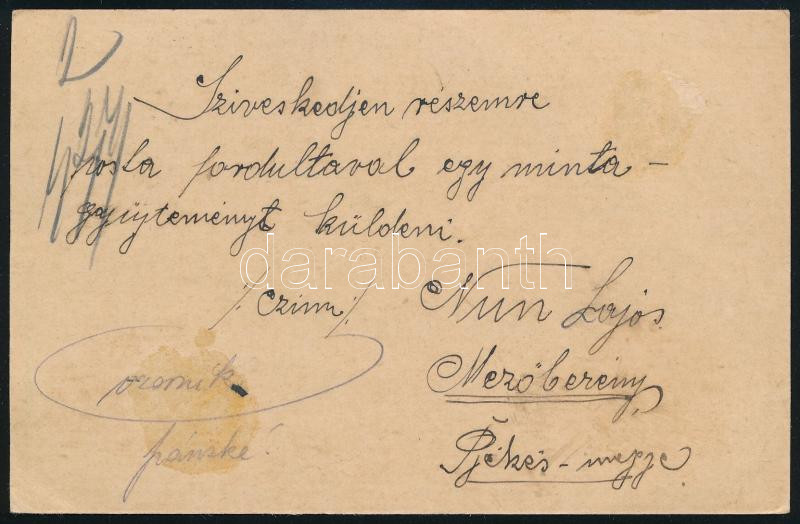 2
Sziveskedjen részemre
posta fordultával egy minta-
gyüjteményt küldeni.
darabanth
/:czim:/ Nun Lajos.
Mezőberény,
Békés-megye
vzorník
pánské!